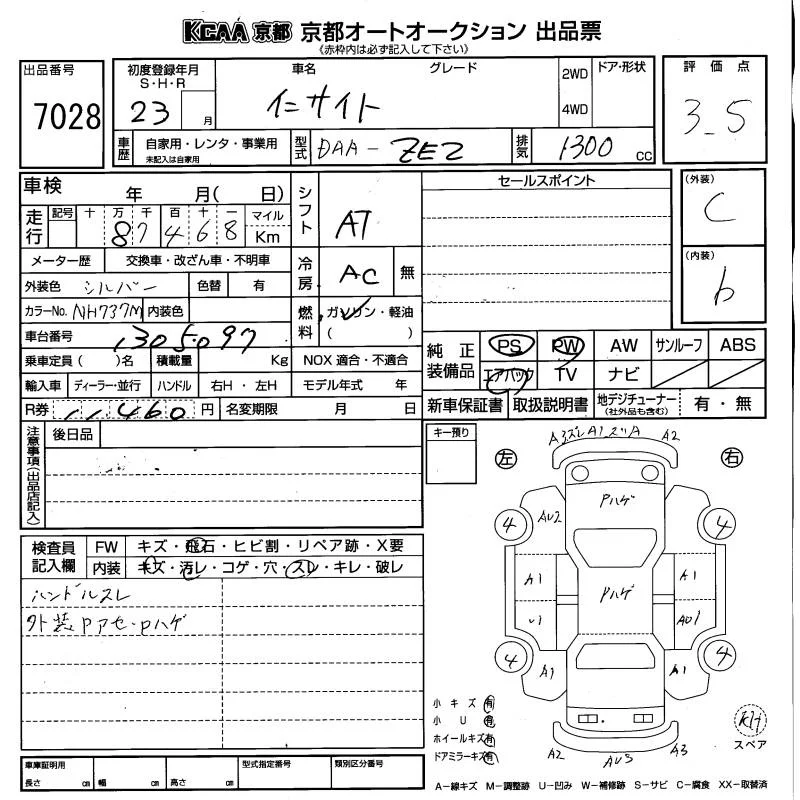 KCAA 京都 京都オートオークション 出品票
《赤枠内は必ず記入して下さい》
出品番号 7028
初度登録年月 S・H・R 23 月
車名 インサイト グレード
2WD 4WD ドア・形状
評価点 3.5
車歴 自家用・レンタ・事業用 未記入は自家用
型式 DAA-ZE2
排気 1300 CC
車検 年 月( 日)
走行 記号 十 万 千 百 十 一 マイル Km
87468
シフト AT
メーター歴 交換車・改ざん車・不明車
冷房 AC 無
外装色 シルバー 色替 有
カラーNo. NH737M 内装色
燃料 ガソリン・軽油 ( )
車台番号 1305097
乗車定員( )名 積載量 Kg NOX 適合・不適合
輸入車 ディーラー・並行 ハンドル 右H・左H モデル年式 年
R券 11,460 円 名変期限 月 日
セールスポイント
(外装) C
(内装) b
純正装備品 PS PW AW サンルーフ ABS
エアバック TV ナビ
新車保証書 取扱説明書 地デジチューナー (社外品も含む) 有・無
注意事項(出品店記入)
後日品
キー預り
検査員記入欄 FW キズ・飛石・ヒビ割・リペア跡・X要
内装 キズ・汚レ・コゲ・穴・スレ・キレ・破レ
ハンドルスレ
外装Pアセ・Pハゲ
左 右
A3 ズレ A1 スリA A2
Pハゲ
4 AU2 4
A1 Pハゲ A1
U1 AU1
4 A1 A1 4
A2 AU3 A3
小キズ 有
小U 有
ホイールキズ 有
ドアミラーキズ 有
スペア
車庫証明用 長さ cm 幅 cm 高さ cm
型式指定番号 類別区分番号
A−線キズ M−調整跡 U−凹み W−補修跡 S−サビ C−腐食 XX−取替済